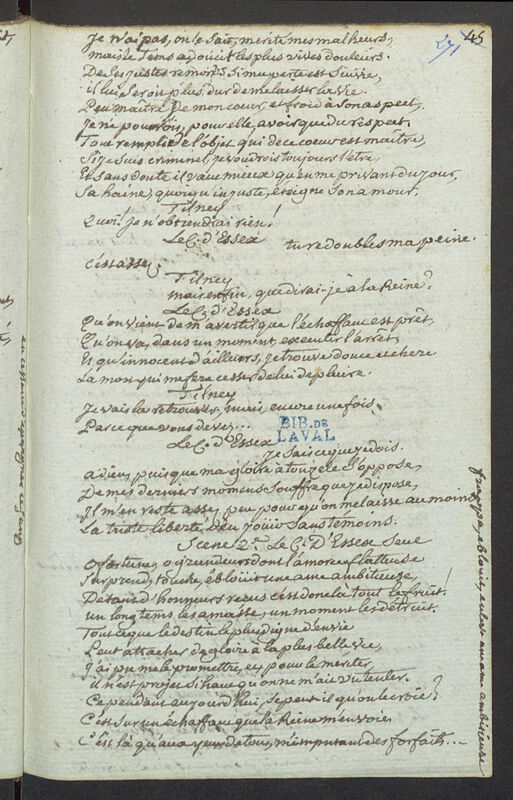 45
Je n'ai pas, on le sait, merité mes malheurs,
mais le tems adoucit les plus vives douleurs.
De ses justes remors si ma perte est suivie,
il lui seroit plus dur de me laisser la vie.
Peu maitre de mon coeur, et froid à son aspect,
Je ne pourrois, pour elle, avoir que du respect,
Tout rempli de l'objet qui de ce coeur est maitre,
Si je suis criminel, je voudrois toujours l'être,
Et sans doute il vaut mieux qu'en me privant du jour,
Sa haine, quoiqu'injuste, éteigne son amour.
Tilney
Quoi! je n'obtiendrai rien!
Le C. d'Essex
tu redoubles ma peine.
c'est assez.
Tilney
mais enfin, que dirai-je à la Reine?
Le C. d'Essex
Qu'on vient de m'avertir que l'échaffaut est prêt,
Qu'on va, dans un moment, executer l'arrêt,
Et qu'innocent d'ailleurs, je trouve douce et chere
La mort qui me fera cesser de lui deplaire.
Tilney
Je vais la retrouver, mais, encore une fois,
Par ce que vous devez...
Le C. d'Essex
Je sais ce que je dois.
adieu, puisque ma gloire à ton zele s'oppose,
De mes derniers momens souffre que je dispose,
Il m'en reste assez peu pour qu'on me laisse au moins
La triste liberté d'en jouir sans témoins.
Scene 2e. Le C. D'Essex seul
O fortune, o grandeurs dont l'amorce flatteuse
Surprend, touche, éblouit une ame ambitieuse,
De tant d'honneurs reçus c'est donc là tout le fruit!
un long tems les amasse, un moment les détruit.
Tout ce que le destin le plus digne d'envie
Peut attacher de gloire à la plus belle vie,
J'ai pu me le promettre, et, pour le meriter,
il n'est projet si haut qu'on ne m'ait vu tenter.
Cependant aujourd'hui, se peut-il qu'on le croie?
C'est sur un échaffaut que la Reine m'envoie.
C'est là qu'aux yeux de tous, m'imputant des forfaits...
BIB. DE
LAVAL